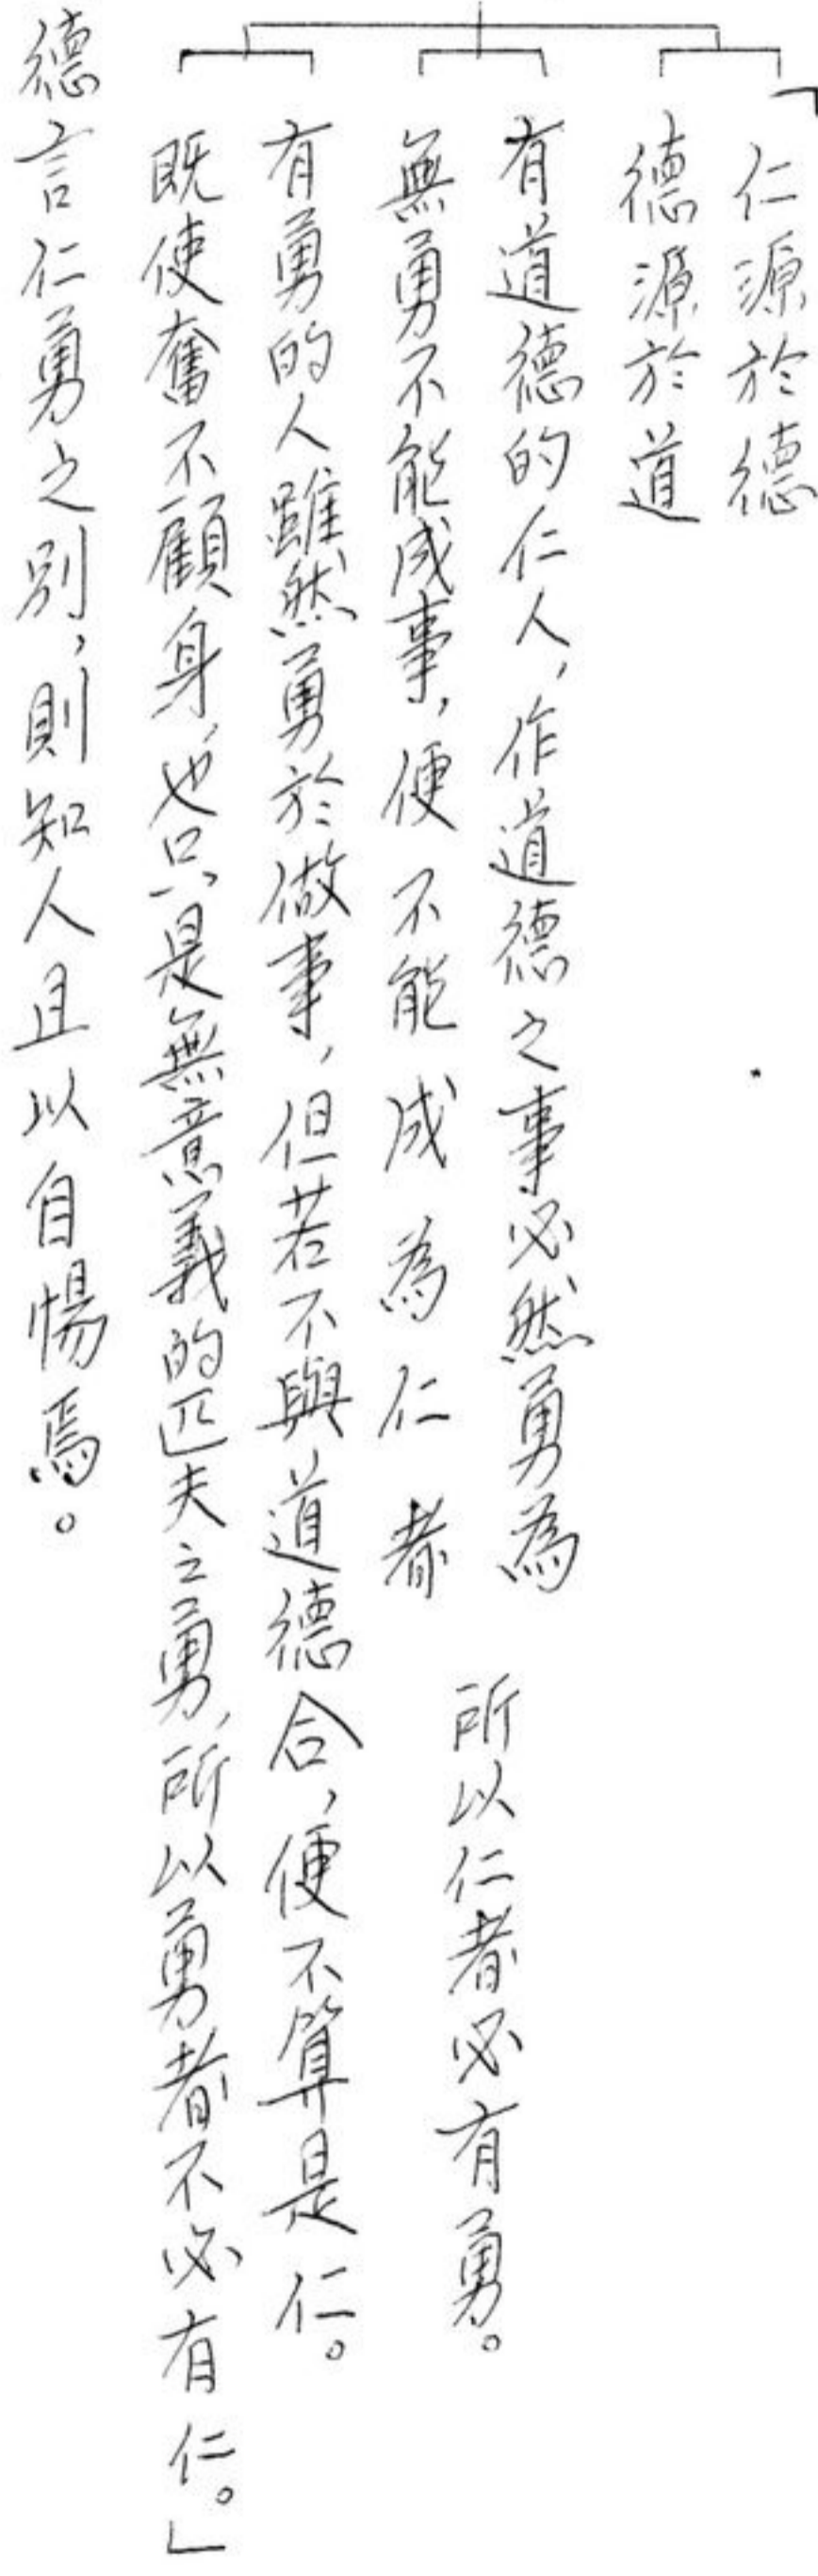 「仁源於德
德源於道
有道德的仁人，作道德之事必然勇為
無勇不能成事，便不能成為仁者
所以仁者必有勇。
有勇的人雖然勇於做事，但若不與道德合，便不算是仁。
既使奮不顧身，也只是無意義的匹夫之勇，所以勇者不必有仁。」
德言仁勇之別，則知人且以自惕焉。